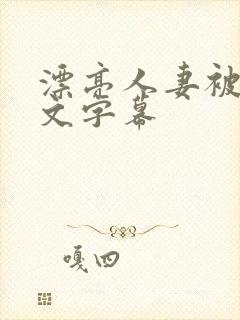 漂亮人妻被
文字幕
嘎四